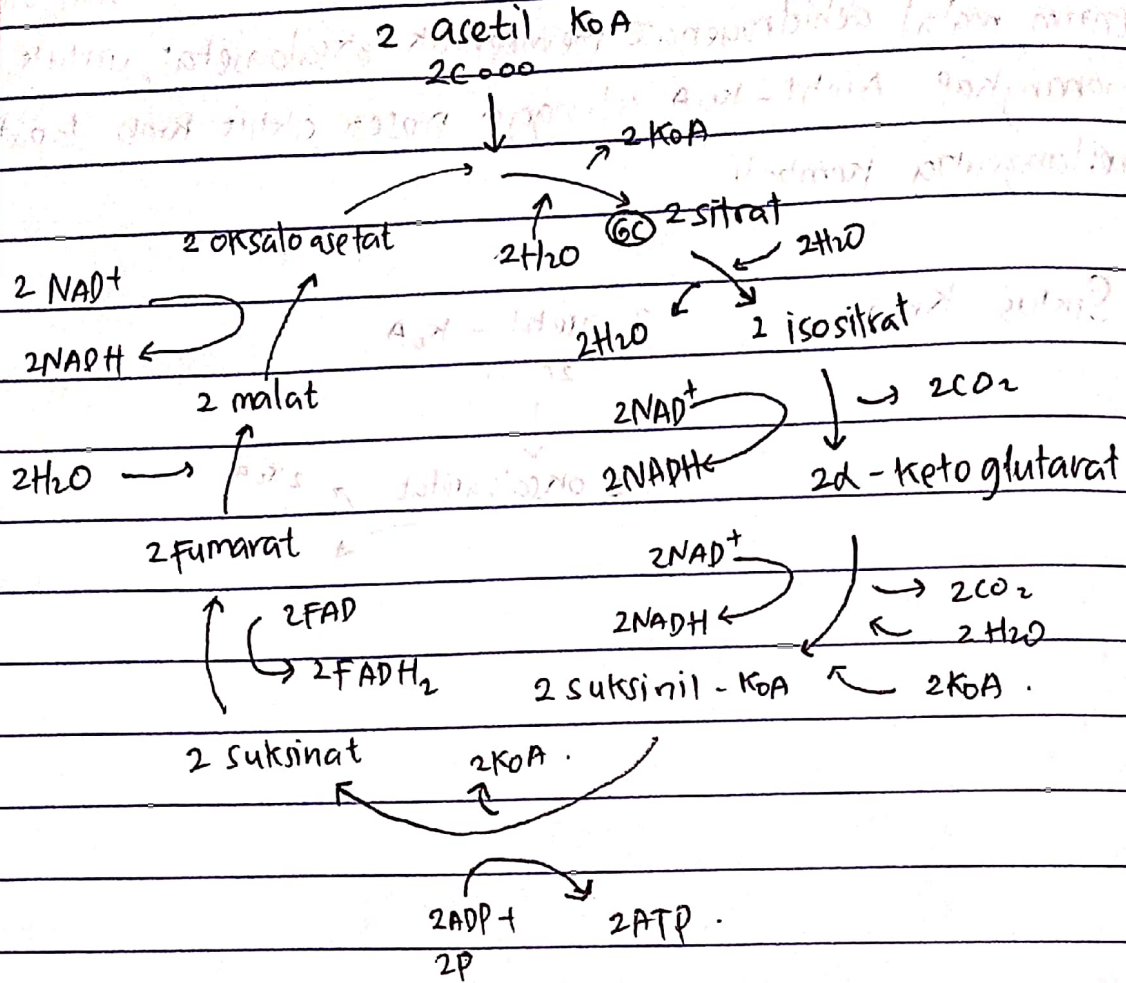 2 asetil KoA
2C
2 KoA
2 oksalo asetat
2H2O
6C 2 sitrat
2H2O
2 NAD+
2NADH
2H2O
2 isositrat
2 malat
2NAD+
2CO2
2H2O
2NADH
2α - Keto glutarat
2 Fumarat
2NAD+
2FAD
2NADH
2CO2
2 H2O
2FADH2
2 suksinil - KoA
2KoA .
2 suksinat
2KoA .
2ADP +
2ATP .
2P